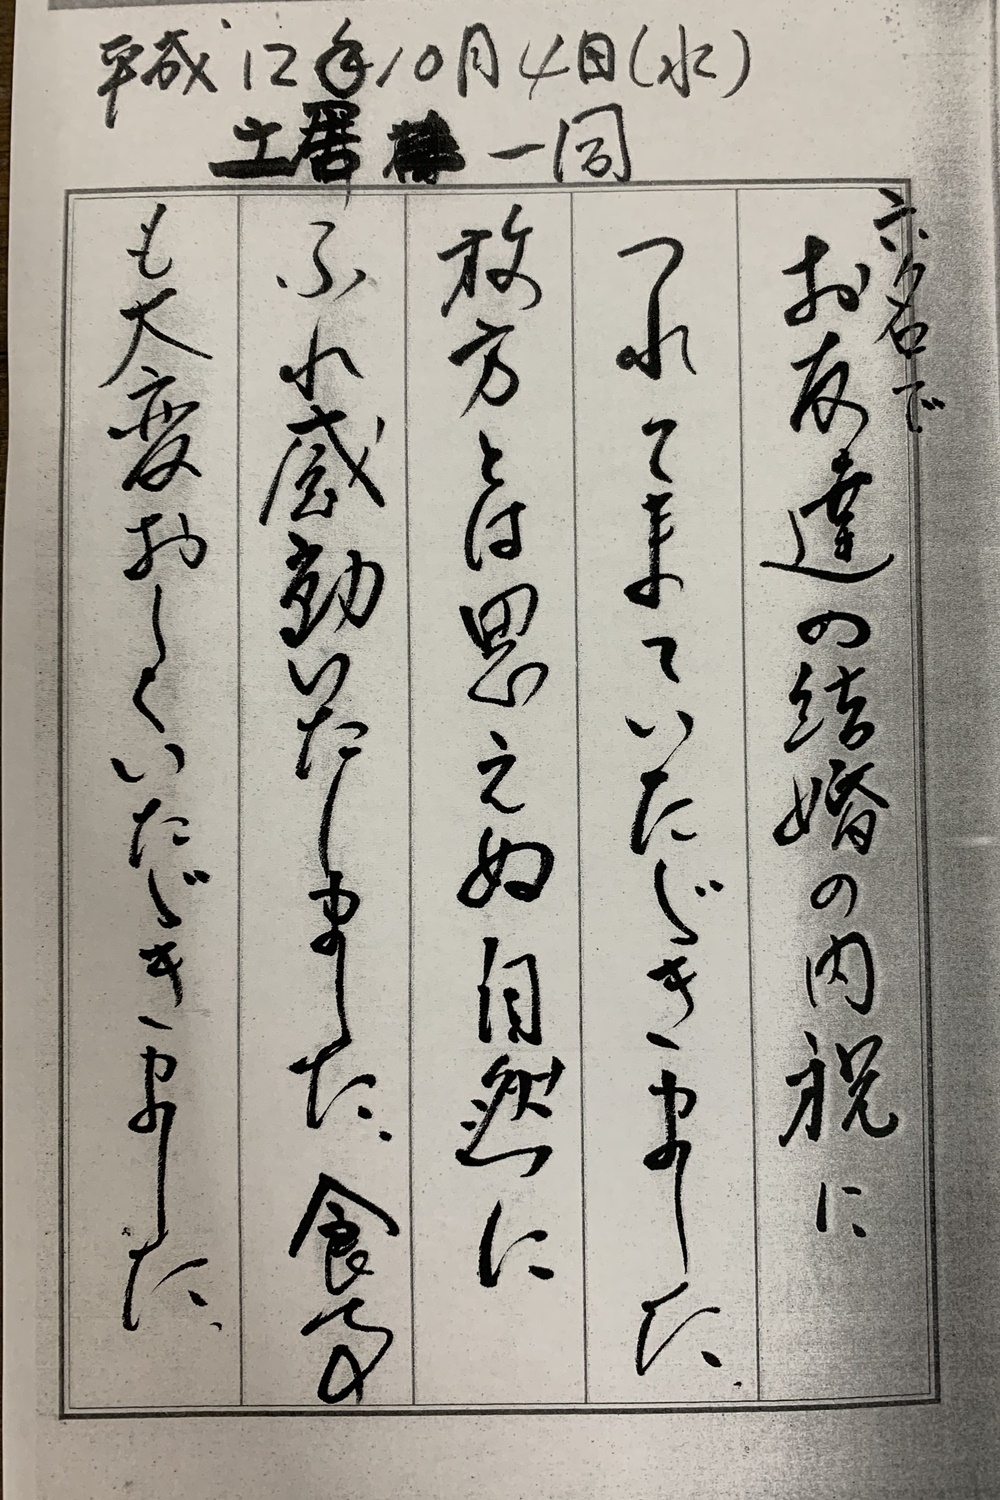 平成12年10月4日(水)
土居様一同
六名で
お友達の結婚の内祝に
つれてきていたゞきました
枚方とは思えぬ自然に
ふれ感動いたしました、食事
も大変おしくいたゞきました、